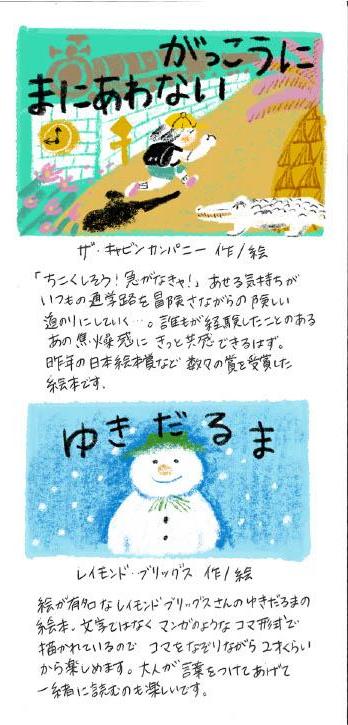 がっこうに
まにあわない
ザ・キャビンカンパニー 作/絵
「ちこくしそう!急がなきゃ!」あせる気持ちが
いつもの通学路を冒険さながらの険しい
道のりにしていく…。誰もが経験したことのある
あの焦燥感にきっと共感できるはず。
昨年の日本絵本賞など数々の賞を受賞した
絵本です。
ゆきだるま
レイモンド・ブリッグス 作/絵
絵が有名なレイモンドブリッグスさんのゆきだるまの
絵本。文字ではなくマンガのようなコマ形式で
描かれているのでコマをなぞりながら2才くらい
から楽しめます。大人が言葉をつけてあげて
一緒に読むのも楽しいです。